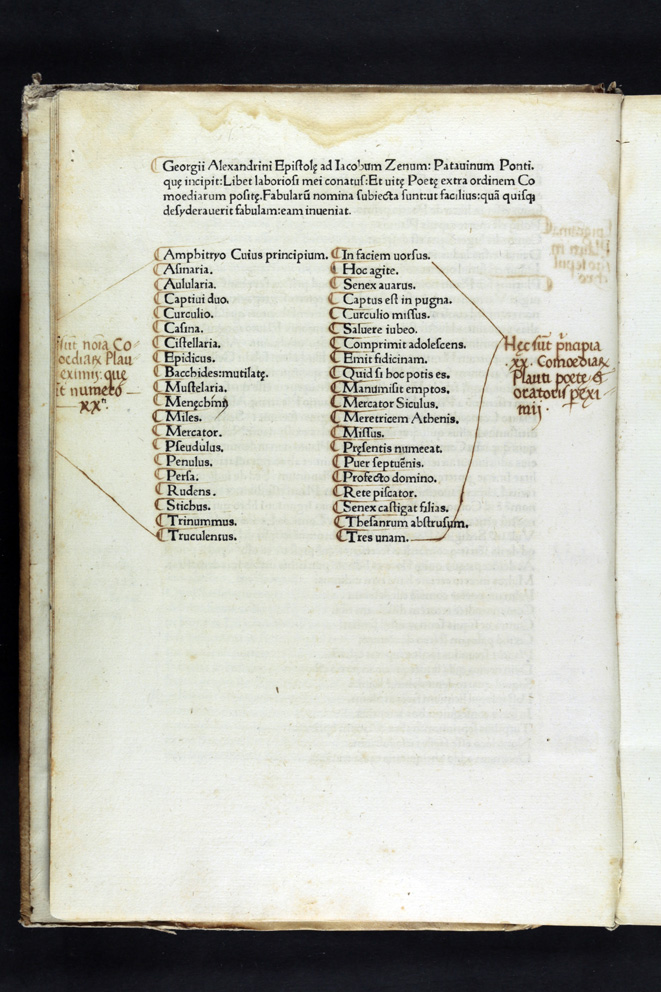 Georgii Alexandrini Epistolę ad Iacobum Zenum: Patauinum Ponti.
quę incipit:Libet laboriosi mei conatus:Et uitę Poetę extra ordinem Co
moediarum positę.Fabularū nomina subiecta sunt:ut facilius:quā quisqȝ
desyderauerit fabulam:eam inueniat.
Amphitryo Cuius principium. In faciem uorsus.
Asinaria. Hoc agite.
Aulularia. Senex auarus.
Captiui duo. Captus est in pugna.
Curculio. Curculio missus.
Casina. Saluere iubeo.
Cistellaria. Comprimit adolescens.
Epidicus. Emit fidicinam.
Bacchides:mutilatę. Quid si hoc potis es.
Mustelaria. Manumisit emptos.
Menęchimo Mercator Siculus.
Miles. Meretricem Athenis.
Mercator. Missus.
Pseudulus. Pręsentis numeeat.
Penulus. Puer septuēnis.
Persa. Profecto domino.
Rudens. Rete piscator.
Stichus. Senex castigat filias.
Trinummus. Thesanrum abstrusum.
Truculentus. Tres unam.
sūt noīa Co
oediaꝝ Plau
eximij: que
sūt numero
xxⁿ.
Hęc sūt pncipia
xx. Comoediaꝝ
Plauti poetę &
oratoris pexi
mij.